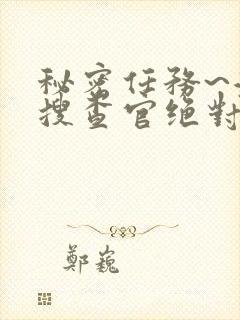 秘密任務~
搜查官绝對
鄭巍